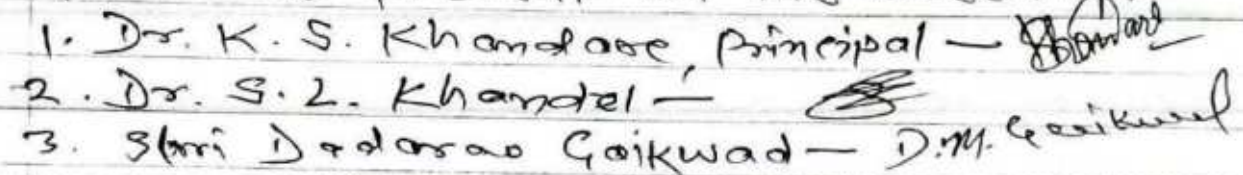 1. Dr. K. S. Khandare, Principal —
2. Dr. S. L. Khandel —
3. Shri Dadarao Gaikwad — D.M. Gaikwad